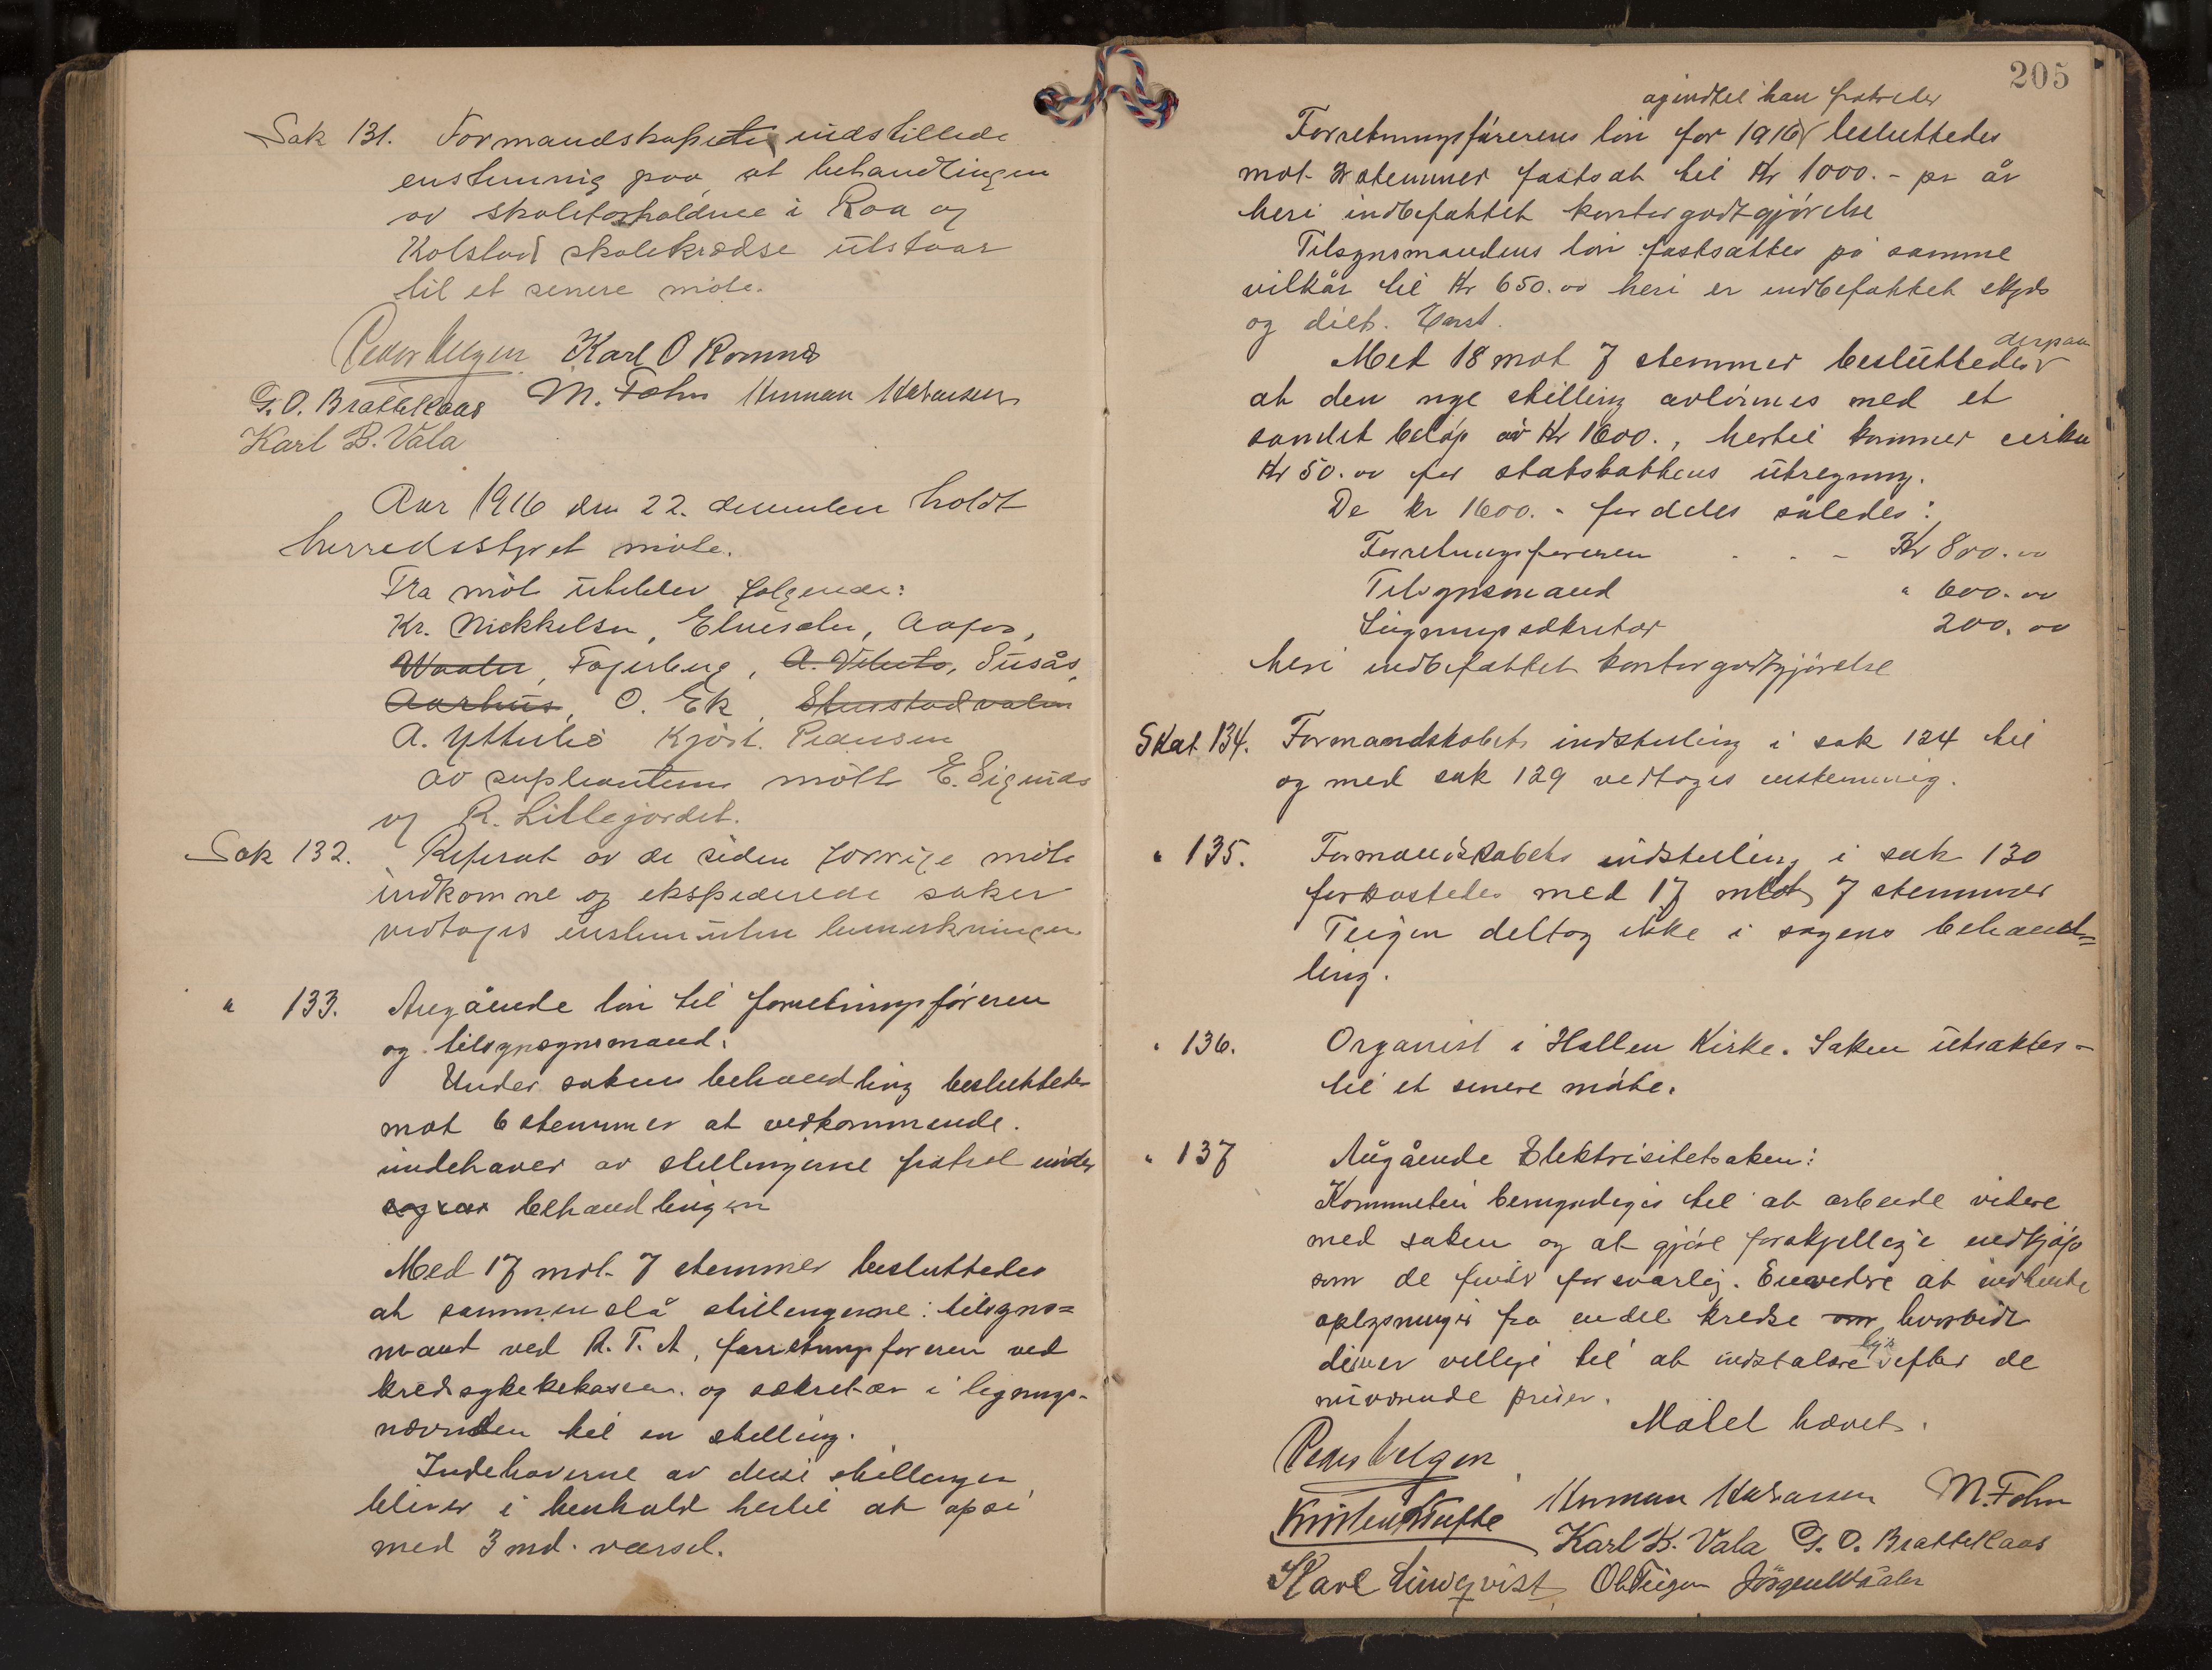 Sak 131. Formandskapet indstillede
enstemmig paa, at behandlingen
av skoleforholdene i Roa og
Kolstad skolekredse utstaar
til et senere møte.
Karl O Romnæs
G. O. Brattekaas M. Fohn Herman
Karl B. Vala
Aar 1916 den 22. december holdt
herredsstyret møte.
Fra møte uteblev følgende:
Kr. Mikkelsen, Elnesdn, Aafos,
Waaler, Fagerberg, Susås,
Aarhus, O. Ek,
A. Ytterbø Kjøst. Pedersen
av supleantene møtte E. Signæs
og R. Lillejordet.
Sak 132. Referat av de siden forrige møte
indkomne og ekspederede saker
vedtages
" 133. Angående løn til forretningsføreren
og tilsynsmand.
Under sakens behandling besluttedes
mot 6 stemmer at vedkommende
indehaver av stillingerne fratræ under
behandlingen
Med 17 mot 7 stemmer besluttedes
at sammenslå stillingerne: tilsyns=
mand ved R. T. A, forretningsføreren ved
kredssykekassen og sekretær i lignings-
nævnden til en stilling.
Indehaverne av disse stillinger
bliver i henhold hertil at opsi
med 3 md. varsel.
205
og indtil han fratreder
Forretningsførerens løn for 1916 besluttedes
mot stemmer fastsat til Kr 1000.- pr år
heri indbefattet kontorgodtgjørelse
Tilsynsmandens løn fastsattes på samme
vilkår til Kr 650.00 heri er indbefattet skyds
og diæt. Enst.
derpaa
Med 18 mot 7 stemmer besluttedes
at den nye stilling avlønnes med et
samlet beløp av Kr 1600., hertil kommer cirka
Kr 50.00 for statskattens utregning.
De kr 1600.- fordeles således:
Forretningsføreren . . - Kr 800.00
Tilsynsmand " 600.00
Ligningssekretær 200.00
heri indbefattet kontorgodtgjørelse
Skat 134. Formandskabets indstilling i sak 124 til
og med sak 129 vedtoges enstemmig.
" 135. Formandskabets indstilling i sak 130
forkastedes med 17 mot 7 stemmer
Teigen deltog ikke i sagens behand=
ling.
" 136. Organist i Hallen Kirke. Saken utsattes -
til et senere møte.
" 137 Angående Elektrisitetsaken:
Kommiteen bemyndiges til at arbeide videre
med saken og at gjøre forskjellige indkjøp
som de finder forsvarlig. Enwidere at indhente
oplysninger fra endel kredse om hvorvidt
disse er villige til at indstalere lys efter de
nuværende priser.
Møtet hævet.
Kristen Tufte Herman M. Fohn
Karl B. Vala G. O. Brattekaas
Karl Lindqvist, Ol Teigen Jørgen Waaler